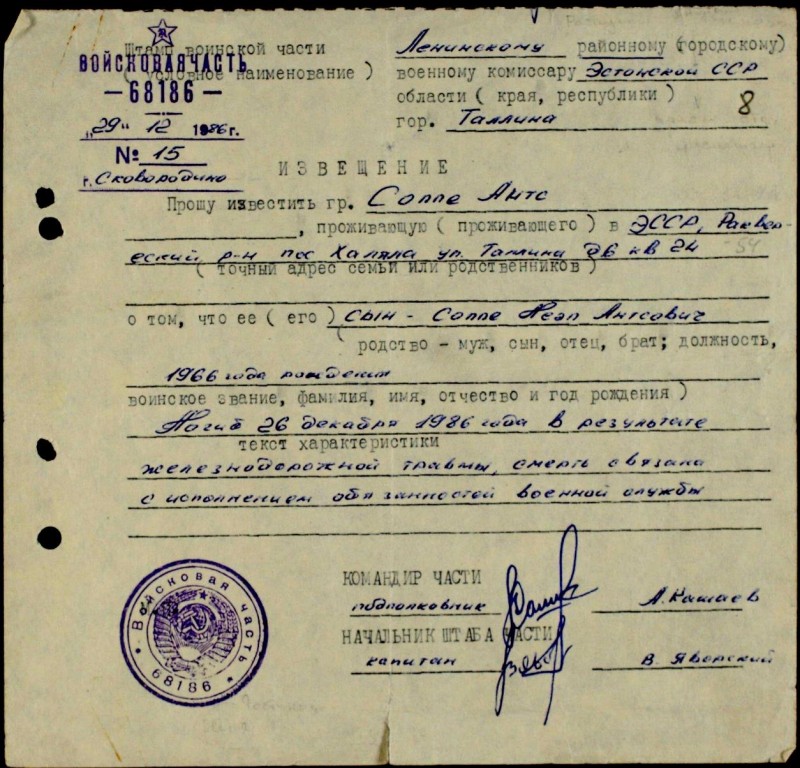 Штамп воинской части
ВОЙСКОВАЯ ЧАСТЬ
( условное наименование )
— 68186 —
„29" 12 1986 г.
№ 15
г. Сковородино
Ленинскому районному (городскому)
военному комиссару Эстонской ССР
области ( края, республики )
8
гор. Таллина
ИЗВЕЩЕНИЕ
Прошу известить гр. Соппе Антс
, проживающую ( проживающего ) в ЭССР, Раквер-
еский р-н пос Халяла ул. Таллина д6 кв 24
54
( точный адрес семьи или родственников )
о том, что ее ( его ) сын - Соппе Антсович
( родство - муж, сын, отец, брат; должность,
1966 года рождения
воинское звание, фамилия, имя, отчество и год рождения )
Погиб 26 декабря 1986 года в результате
текст характеристики
железнодорожной травмы, смерть связана
с исполнением обязанностей военной службы
КОМАНДИР ЧАСТИ
подполковник А. Кашаев
НАЧАЛЬНИК ШТАБА ЧАСТИ
капитан В. Яворский
Войсковая часть
68186